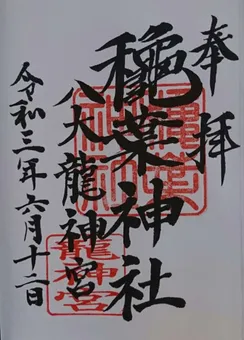 奉拝
穐葉神社
八大龍神宮
令和三年六月十二日
龍神宮